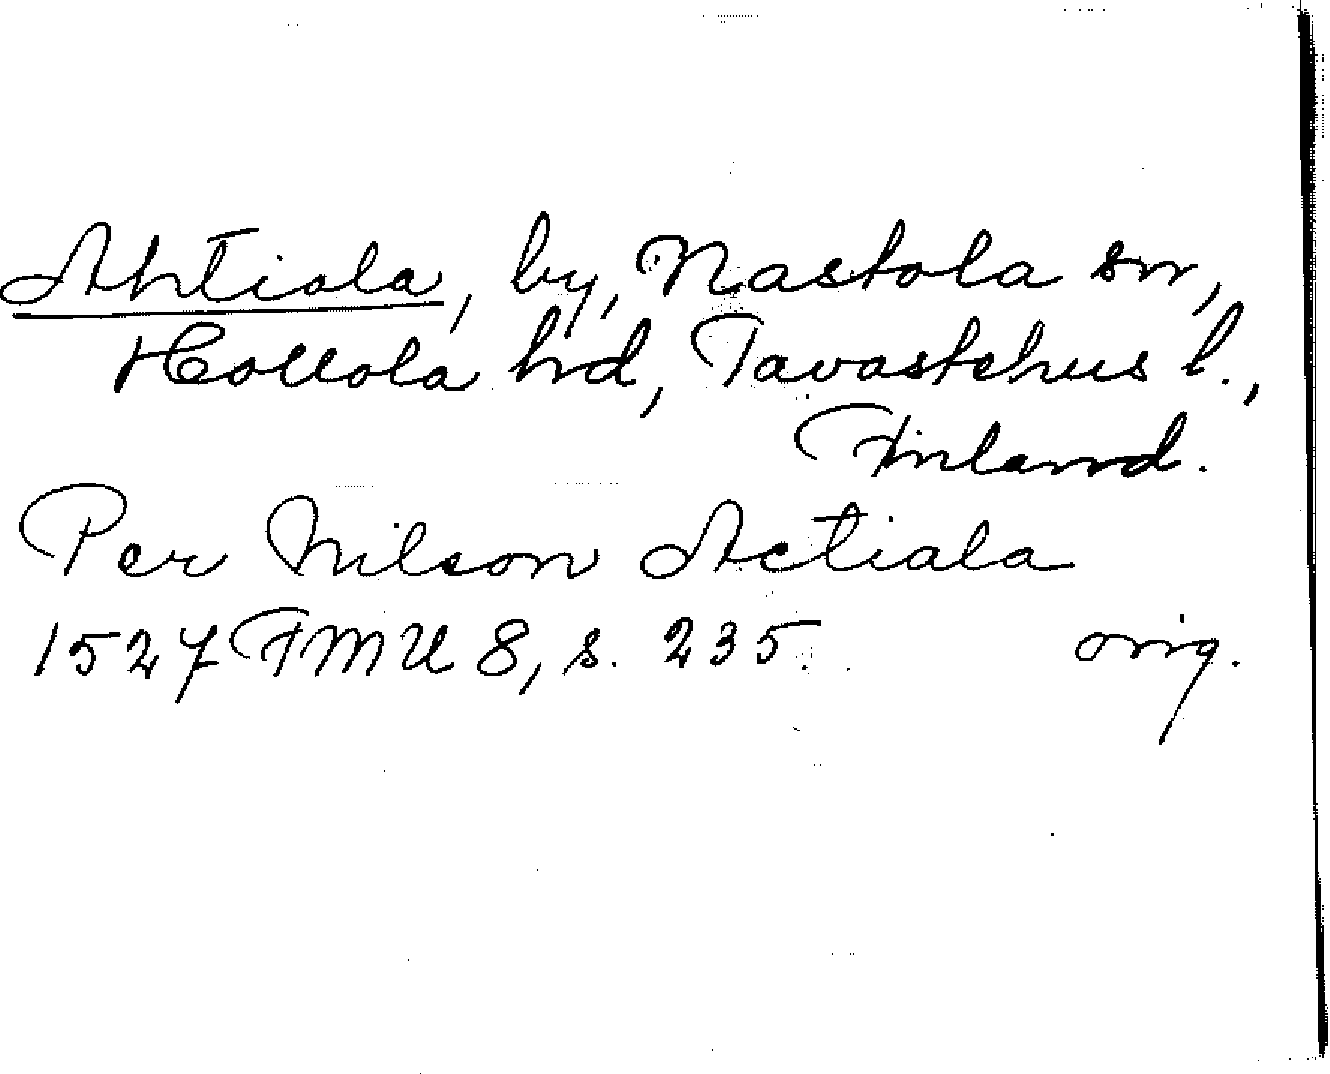 Ahtiala, by, Nastola sn,
Hollola hd, Tavastehus l.,
Finland.
Per Nilson Actiala
1527 FMU 8, s. 235 orig.